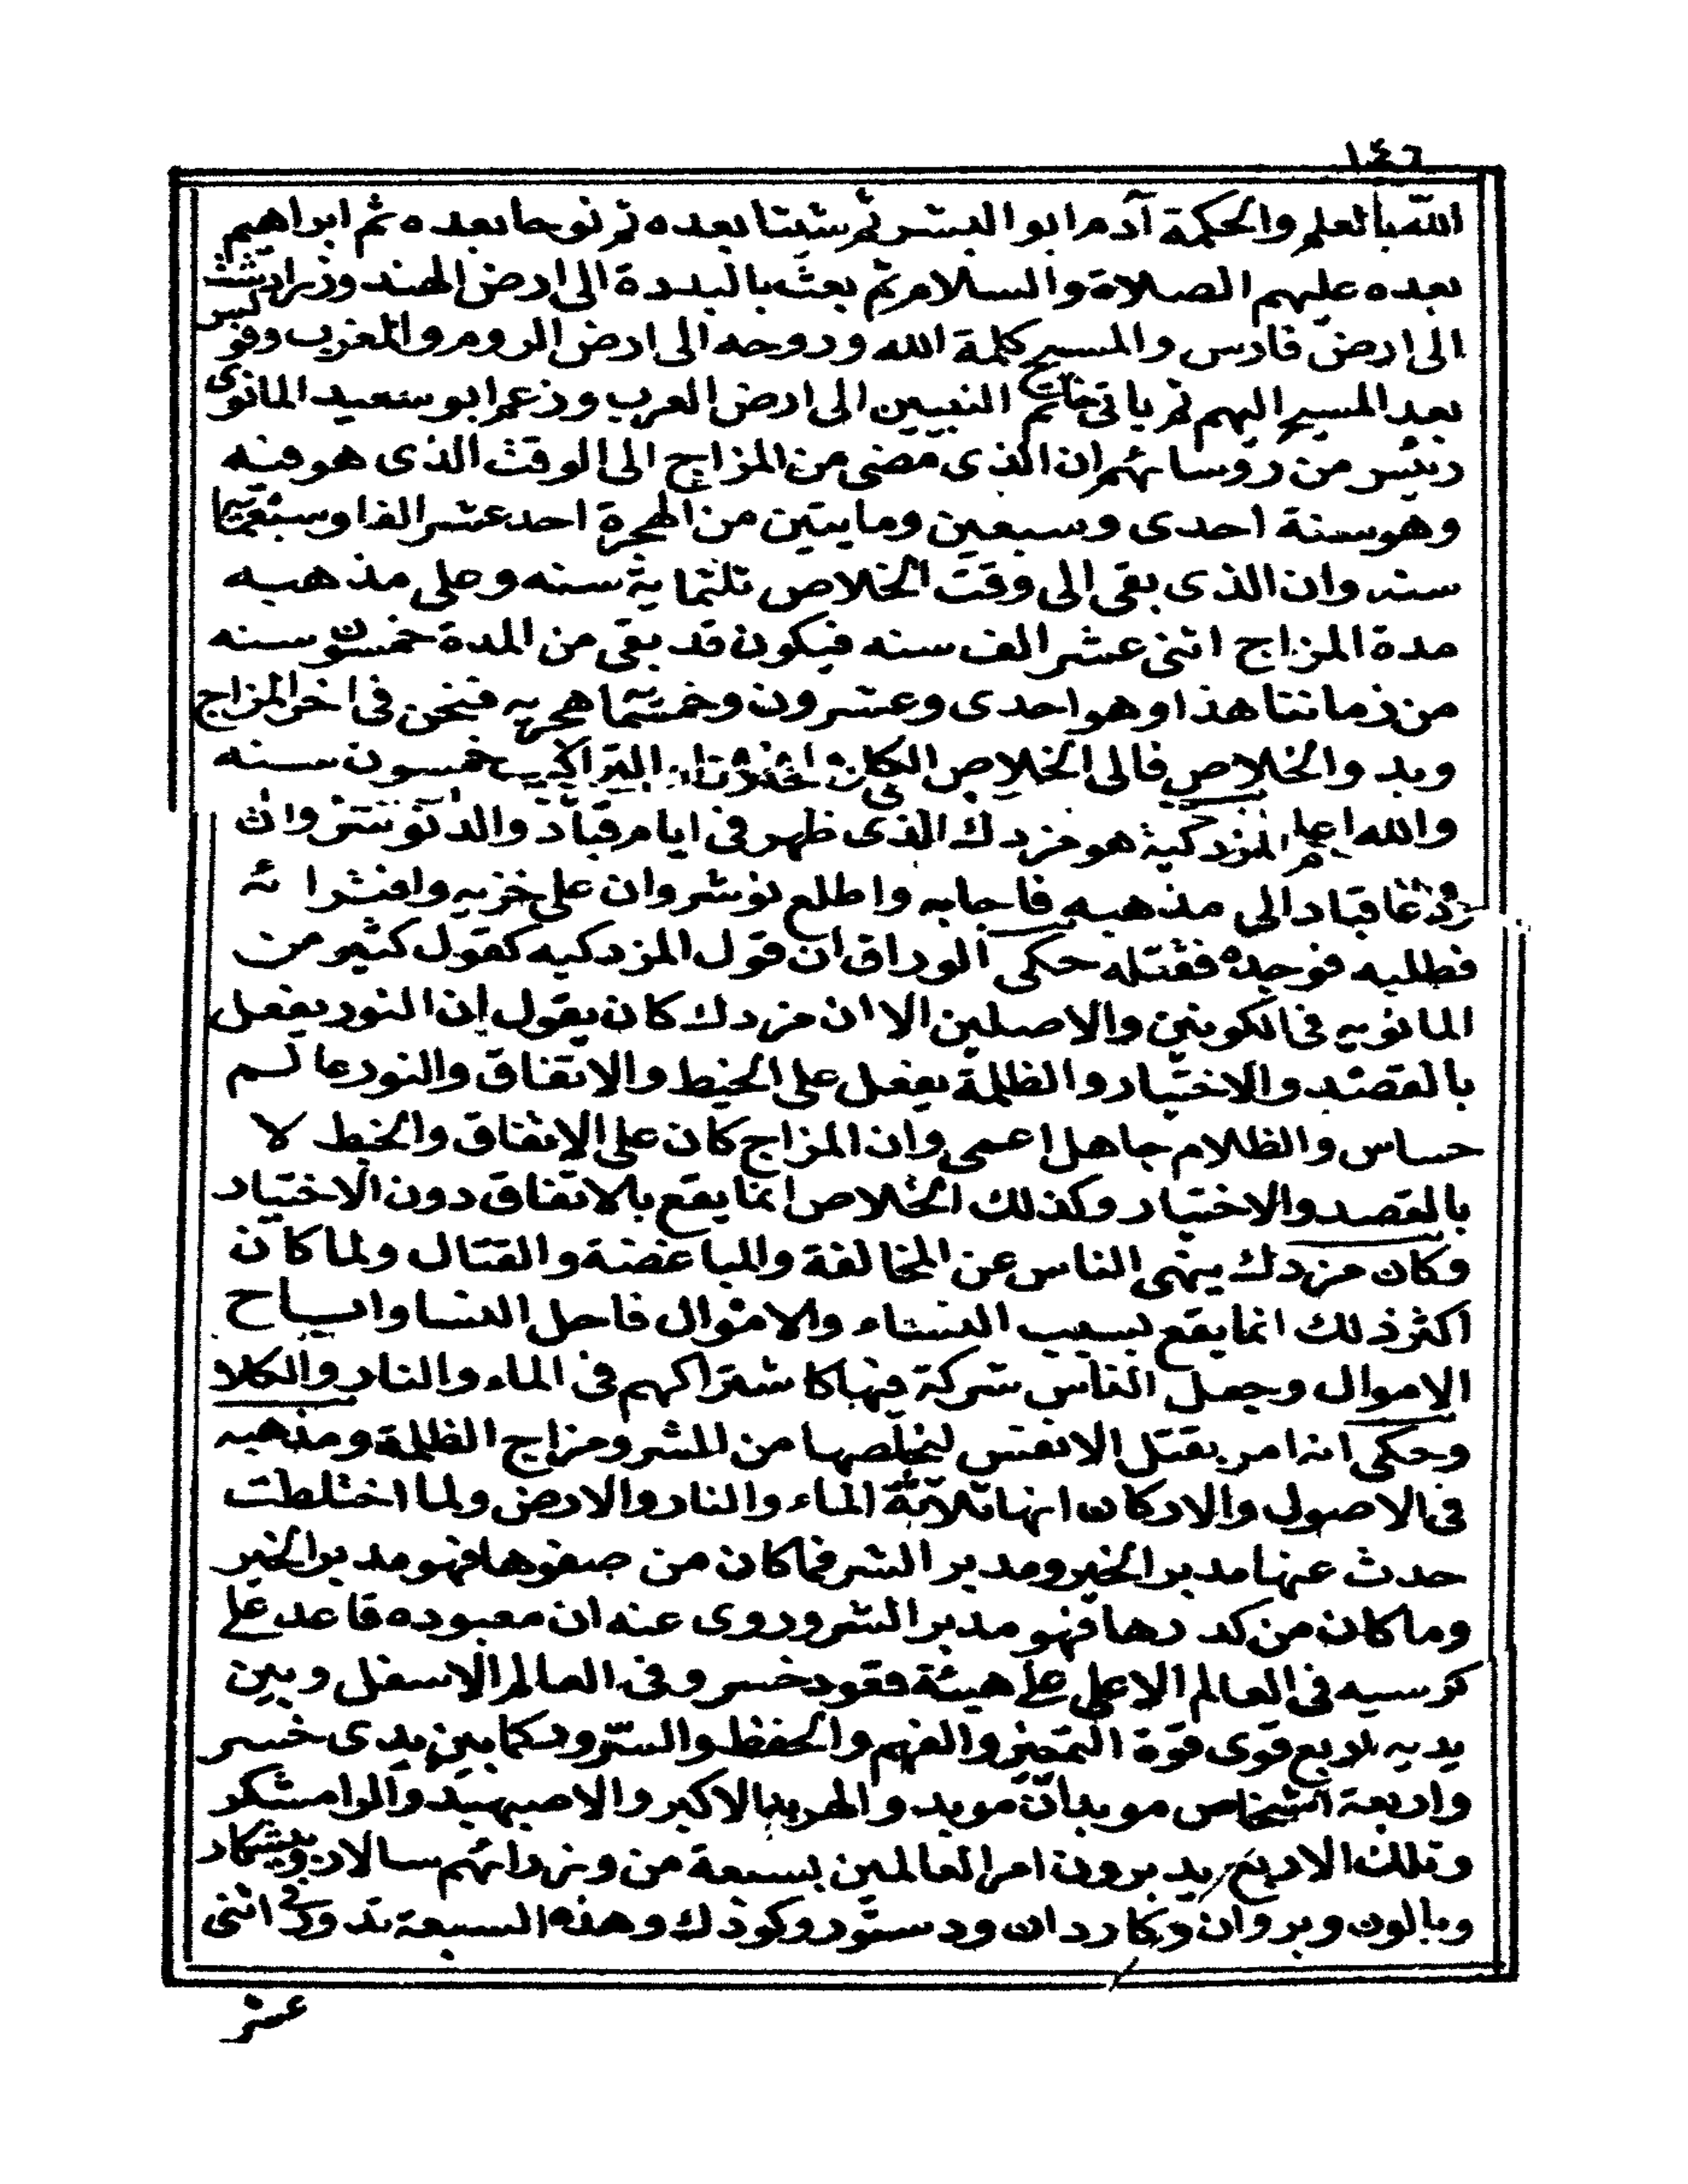 ١٤٦
الله بالعلم والحكمة آدم ابو البشر ثم شيثا بعده ثم نوحا بعده ثم ابراهيم
بعده عليهم الصلاة والسلام ثم بعث بالبددة الى ارض الهند وزرادشت
الى ارض فارس والمسيح كلمة الله وروحه الى ارض الروم والمغرب وفولس
بعد المسيح اليهم ثم ياتى خاتم النبيين الى ارض العرب وزعم ابو سعيد المانوى
رئيس من روسائهم ان الذى مضى من المزاج الى الوقت الذى هو فيه
وهو سنة احدى وسبعين ومايتين من الهجرة احد عشر الفا وسبعمائة
سنه وان الذى بقى الى وقت الخلاص ثلثماية سنه وعلى مذهبه
مدة المزاج اثنى عشر الف سنه فيكون قد بقى من المدة خمسون سنه
من زماننا هذا وهو احدى وعشرون وخمسمائة هجريه فنحن فى اخر المزاج
وبدو الخلاص فالى الخلاص الكلى التراكيب خمسون سنه
والله اعلم المزدكية هو مزدك الذى ظهر فى ايام قباد والد نوشروان
ودعا قباد الى مذهبه فاجابه واطلع نوشروان على خزيه وافترائه
فطلبه فوجده فقتله حكى الوراق ان قول المزدكيه كقول كثير من
المانويه فى الكونين والاصلين الا ان مزدك كان يقول ان النور يفعل
بالقصد والاختيار والظلمة يفعل على الخبط والاتفاق والنور عالم
حساس والظلام جاهل اعمى وان المزاج كان على الاتفاق والخبط لا
بالقصد والاختيار وكذلك الخلاص انما يقع بالاتفاق دون الاختيار
وكان مزدك ينهى الناس عن المخالفة والمباغضة والقتال ولما كان
اكثر ذلك انما يقع بسبب النساء والاموال فاحل النسا واباح
الاموال وجعل الناس شركة فيها كاشتراكهم فى الماء والنار والكلا
وحكى انه امر بقتل الانفس ليخلصها من الشر ومزاج الظلمة ومذهبه
فى الاصول والاركان انها ثلاثة الماء والنار والارض ولما اختلطت
حدث عنها مدبر الخير ومدبر الشر فما كان من صفوها فهو مدبر الخير
وما كان من كدرها فهو مدبر الشر وروى عنه ان معبوده قاعد على
كرسيه فى العالم الاعلى على هيئة قعود خسر وفى العالم الاسفل وبين
يديه اربع قوى قوة التميز والفهم والحفظ والسرور كما بين يدى خسر
واربعة اشخاص موبدان موبد والهربد الاكبر والاصبهبد والرامشكر
وتلك الاربع يدبرون امر العالمين بسبعة من وزرائهم سالار وبيشكار
وبالون وبروان وكاردان ودستور وكوذك وهذه السبعة تدور فى اثنى
عشر